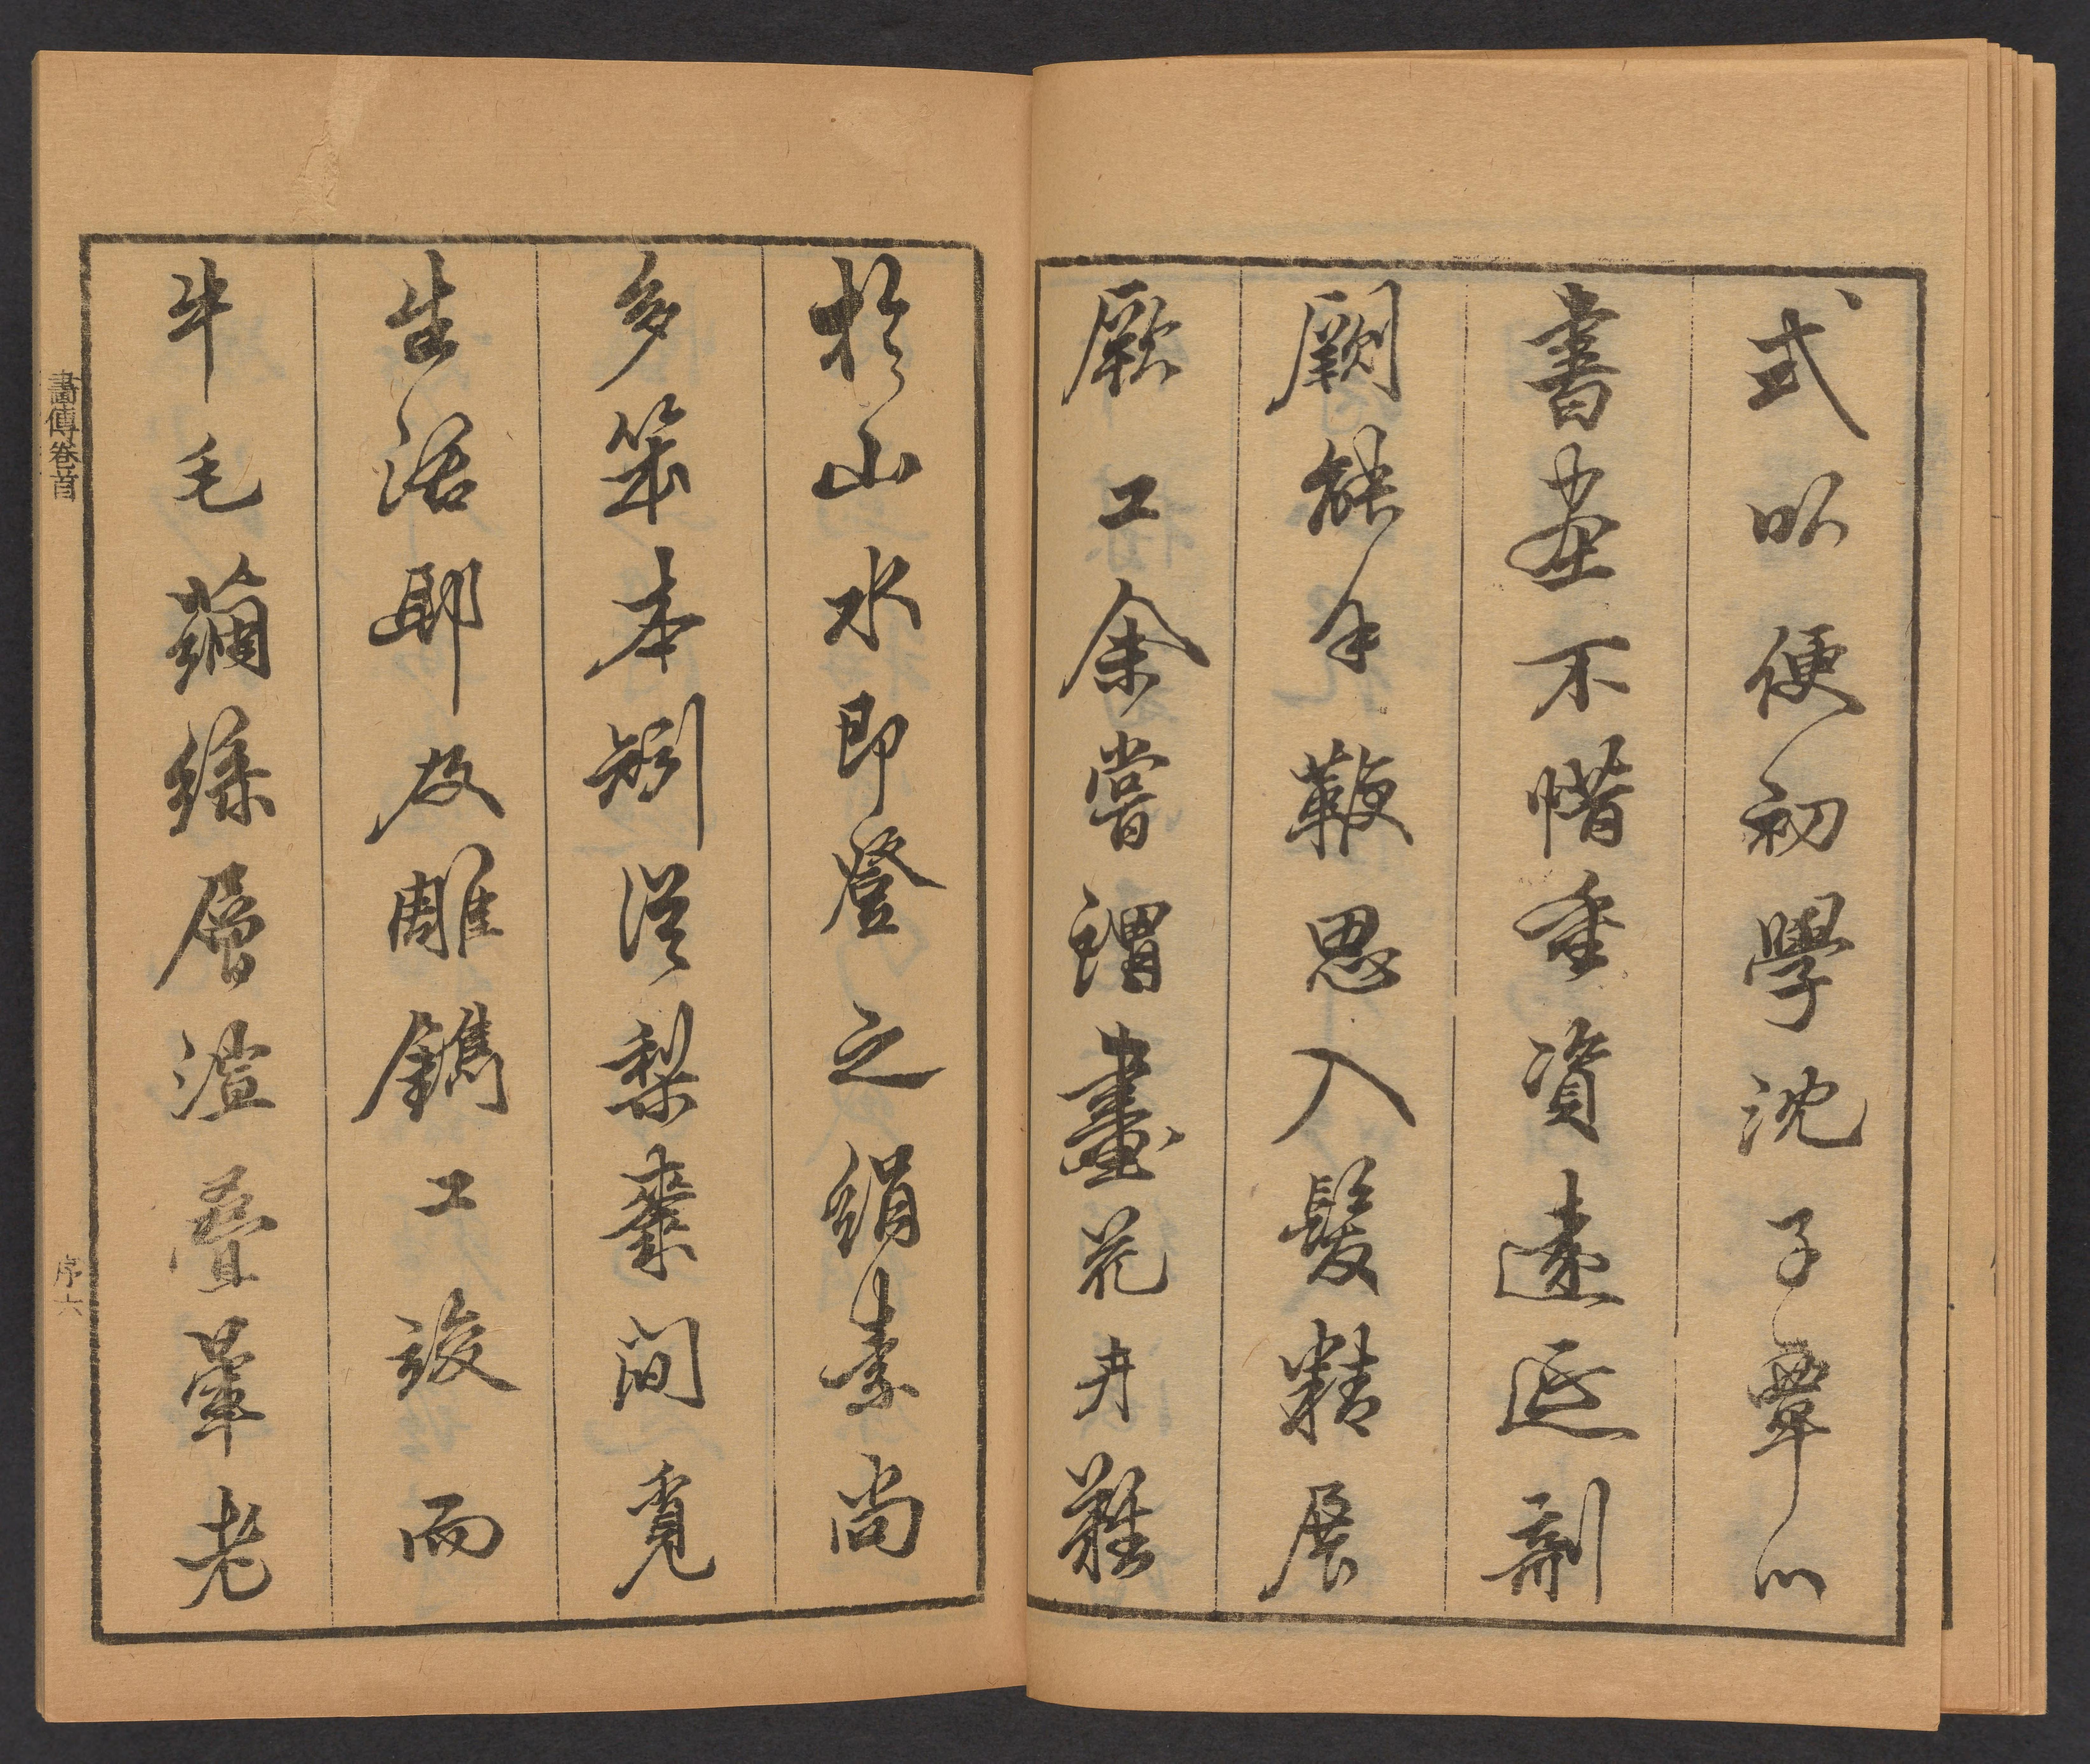 式以便初學沈子覃心
書畫不惜重資遠延剞
劂能手鞭思入髮精展
厥工余嘗謂畫花卉難
於山水即登之絹素尚
多笨本矧從梨棗間覓
生活耶故雕鐫工竣而
牛毛繭絲層渲疊暈老
畫傳卷首
序六